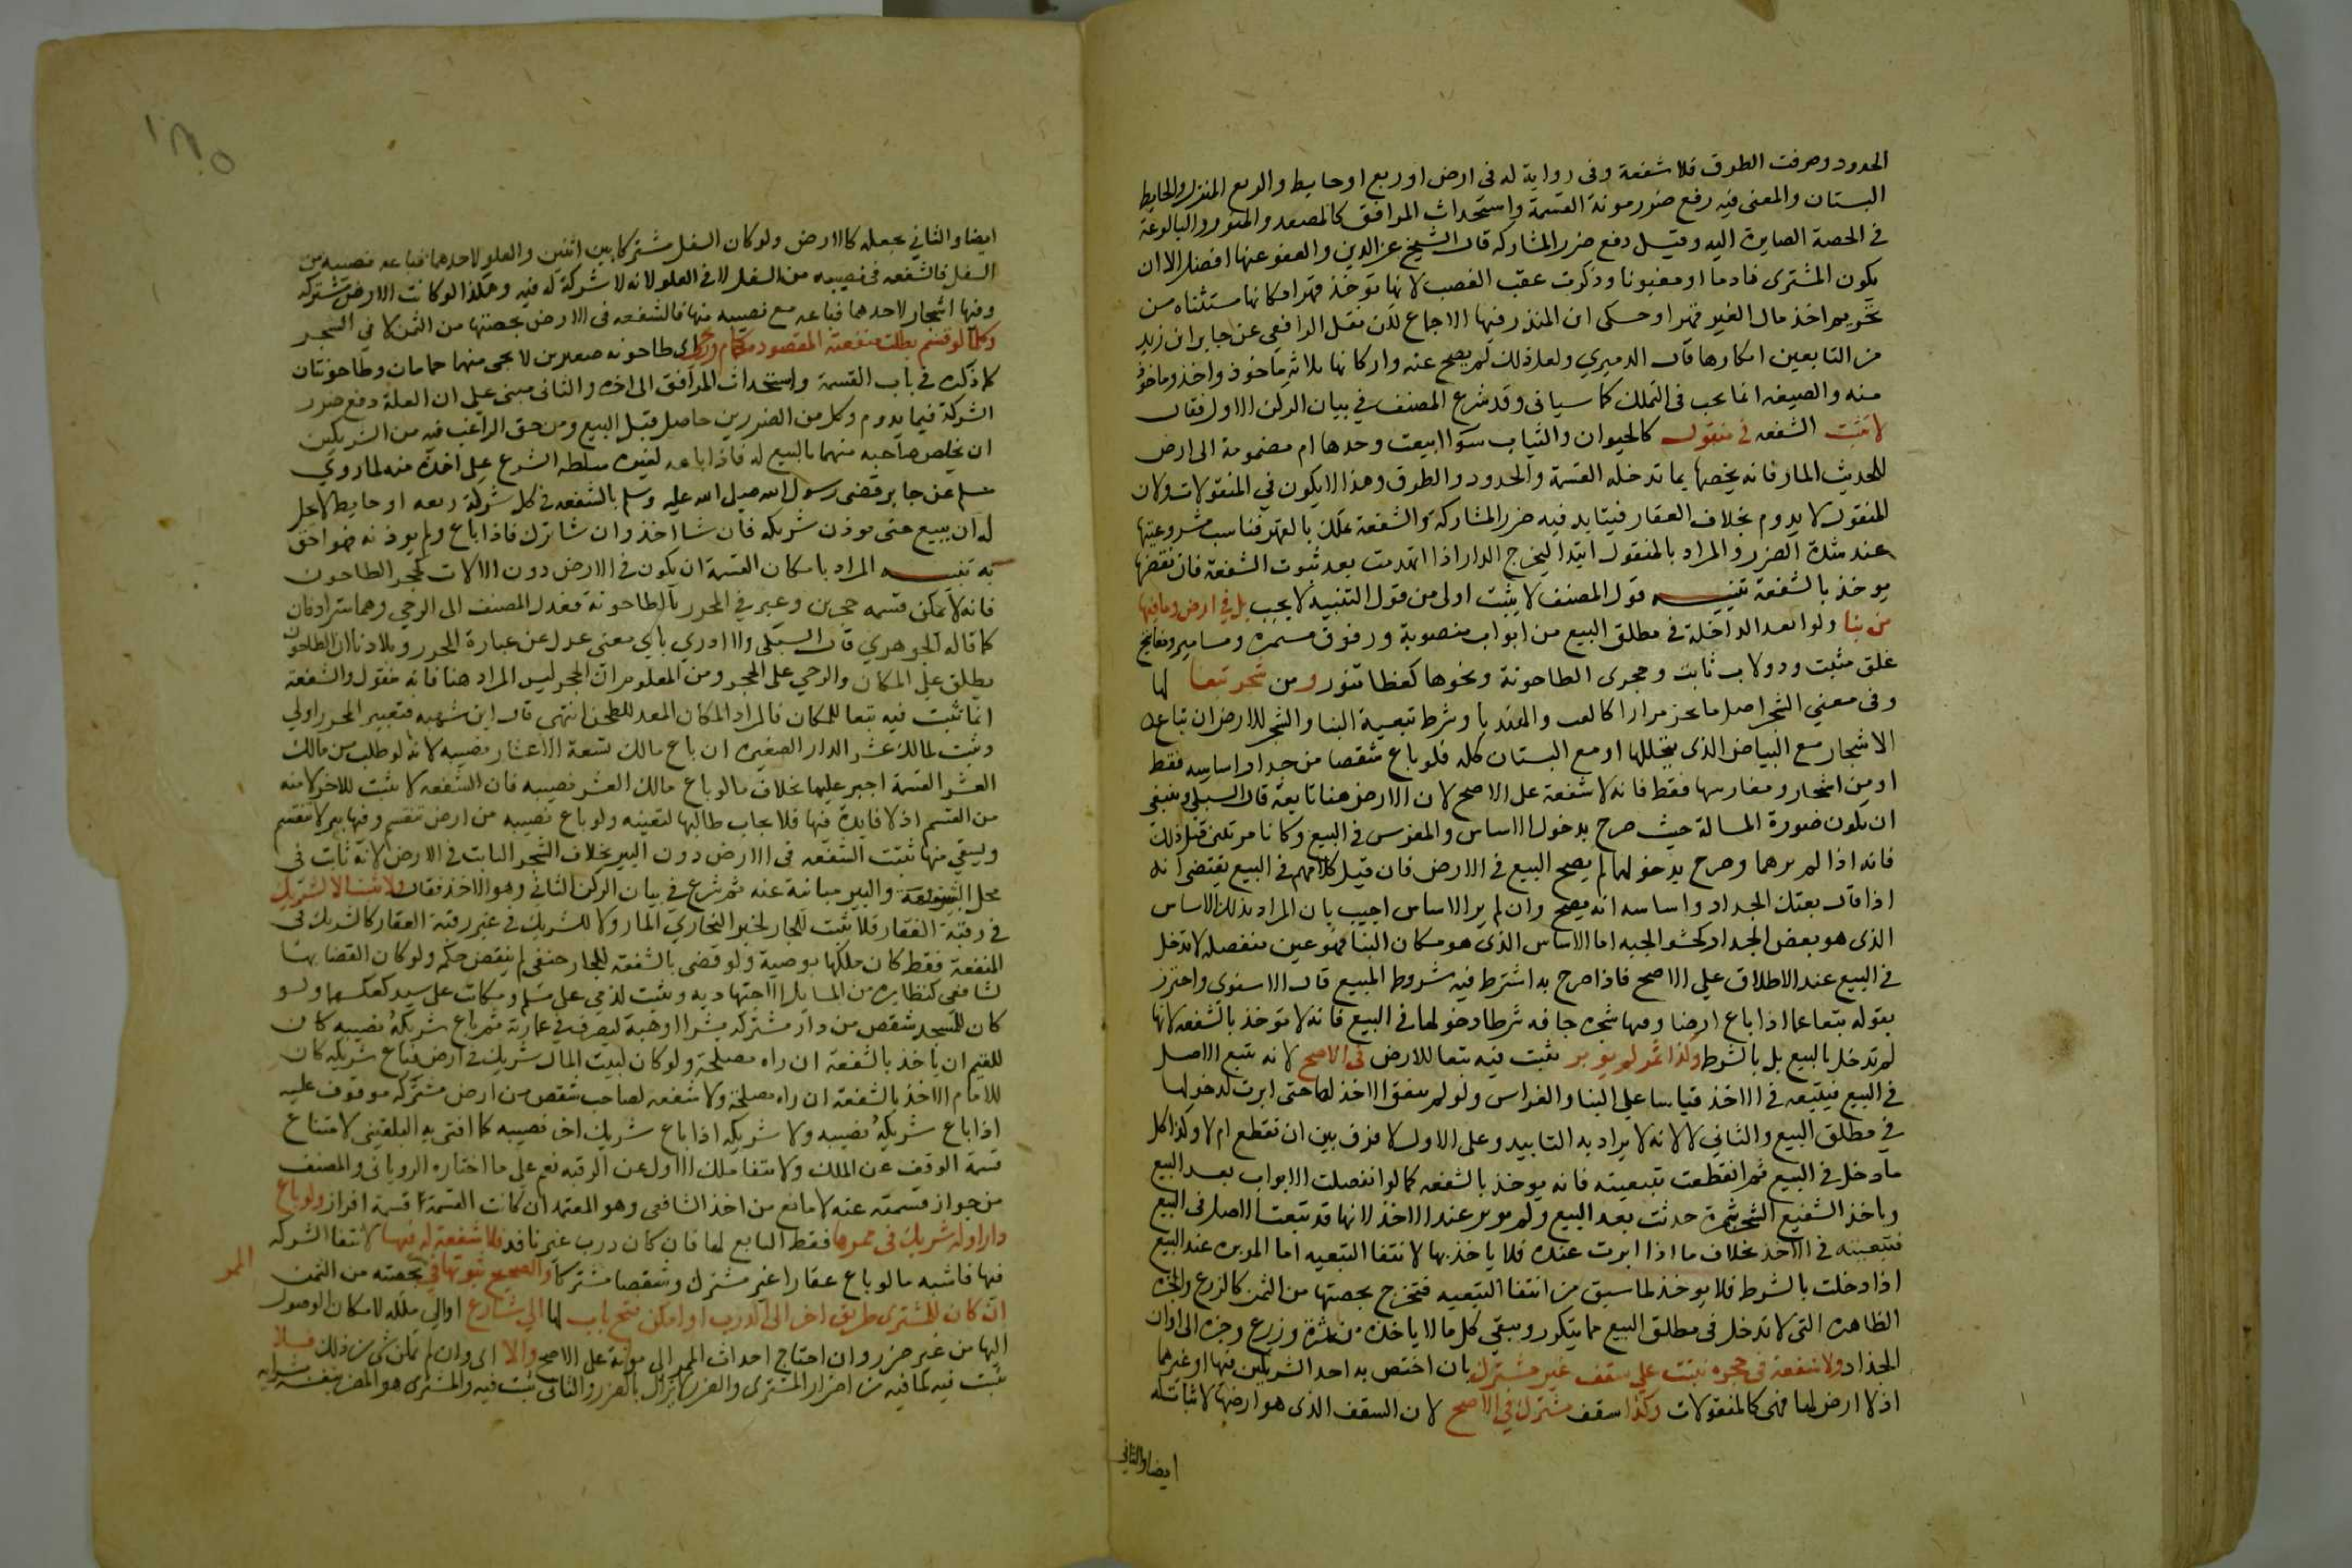 الحدود وصرفت الطرق فلا شفعة وفي رواية له في ارض او ربع او حايط والربع المنزل والحايط
البستان والمعنى فيه رفع ضرر مونة القسمة واستحداث المرافق كالمصعد والمنور والبالوعة
في الحصة الصايرة اليه وقيل دفع ضرر المشاركه قال الشيخ عز الدين والعفو عنها افضل الا ان
يكون المشترى نادما او مغبونا وذكرت عقب الغصب لانها توخذ قهرا فكانها مستثناه من
تحريم اخذ مال الغير قهرا وحكى ابن المنذر فيها الاجماع لكن نقل الرافعي عن جابر ابن زيد
من التابعين انكارها قال الدميري ولعل ذلك لم يصح عنه واركانها ثلاثة ماخوذ واخذ وماخوذ
منه والصيغه انما تجب في التملك كما سياتي وقد شرع المصنف في بيان الركن الاول فقال
لا تثبت الشفعه في منقول كالحيوان والثياب سوا ابيعت وحدها ام مضمومة الى ارض
للحديث المار فانه يخصها بما تدخله القسمة والحدود والطرق وهذا لا يكون في المنقولات ولان
المنقول لا يدوم بخلاف العقار فيتابد فيه ضرر المشاركة والشفعة تملك بالقهر فناسب مشروعيتها
عند شدة الضرر والمراد بالمنقول ابتدا ليخرج الدار اذا انهدمت بعد ثبوت الشفعة فان نقضها
يوخذ بالشفعة تنبيه قول المصنف لا يثبت اولى من قول التنبيه لا يجب بل في ارض وما فيها
من بنا ولو بعد الداخلة في مطلق البيع من ابواب منصوبة ورفوف مسمرة ومسامير ومفاتيح
غلق مثبت ودولاب ثابت وحجري الطاحونة ونحوها كغطا تنور ومن شجر تبعا لها
وفي معني الشجر اصل ما يجز مرارا كالقت والهندبا وشرط تبعية البنا والشجر للارض ان تباع
الاشجار مع البياض الذي يتخللها او مع البستان كله فلو باع شقصا من جدار اساسه فقط
او من اشجار ومغارسها فقط فانه لا شفعة على الاصح لان الارض هنا تابعة قال السبكي وينبغي
ان تكون صورة المسالة حيث صرح بدخول الاساس والمغرس في البيع وكانا مرئيين قبل ذلك
فانه اذا لم يرهما وصرح بدخولهما لم يصح البيع في الارض فان قيل كلامهم في البيع يقتضي انه
اذا قال بعتك الجدار واساسه انه يصح وان لم ير الاساس اجيب بان المراد بذلك الاساس
الذي هو بعض الجدار كحشو الجبه اما الاساس الذي هو مكان البنا فهو عين منفصله لا تدخل
في البيع عند الاطلاق علي الاصح فاذا صرح به اشترط فيه شروط المبيع قال الاسنوى واحترز
بقوله تبعا عما اذا باع ارضا وفيها شجره جافه شرطا دخولها في البيع فانه لا توخذ بالشفعه لانها
لم تدخل بالبيع بل بالشرط وكذا ثمر لم يوبر تثبت فيه تبعا للارض في الاصح لانه يتبع الاصل
في البيع فيتبعه في الاخذ قياسا على البنا والغراس ولو لم يتفق الاخذ لها حتى ابرت لدخولها
في مطلق البيع والثاني لا لانه لا يراد به التابيد وعلى الاول لا فرق بين ان تقطع ام لا وكذا كل
ما دخل في البيع ثم انقطعت تبعيته فانه يوخذ بالشفعه كما لو انفصلت الابواب بعد البيع
وياخذ الشفيع الشجر ثمرة حدثت بعد البيع ولم توبر عند الاخذ لانها قد تبعت الاصل في البيع
فتتبعه في الاخذ بخلاف ما اذا ابرت عنده فلا ياخذ بها لانتفا التبعيه اما الموبره عند البيع
اذا دخلت بالشرط فلا يوخذ لما سبق من انتفا التبعيه فتخرج بحصتها من الثمن كالزرع والجزه
الظاهره التي لا تدخل في مطلق البيع مما يتكرر ويبقى كل ما لا ياخذه من ثمرة وزرع وجزه الى اوان
الجذاد ولا شفعة في حجره بنيت على سقف غير مشترك بان اختص به احد الشريكين فيها او غيرهما
اذ لا ارض لها فهي كالمنقولات وكذا سقف مشترك في الاصح لان السقف الذي هو ارضها لا ثبات له
ايضا والثاني
ايضا والثاني بجعله كالارض ولو كان السفل مشتركا بين اثنين والعلو لاحدهما فباعه نصيبه من
السفل فالشفعه في نصيبه من السفل لا في العلو لانه لا شركة له فيه وهكذا لو كانت الارض مشتركه
وفيها اشجار لاحدهما فباعه مع نصيبه منها فالشفعه في الارض بحصتها من الثمن لا في الشجر
وكل ما لو قسم بطلت منفعته المقصوده كحمام ورحى اي طاحونه صغيرين لا يجي منهما حمامان وطاحونتان
كما ذكره في باب القسمة واستحداث المرافق الى اخره والثاني مبني علي ان العلة دفع ضرر
الشركة فيما يدوم وكل من الضررين حاصل قبل البيع ومن حق الراغب فيه من الشريكين
ان يخلص صاحبه منهما بالبيع له فاذا باعه لغيره سلطه الشرع علي اخذه منه لما روي
مسلم عن جابر قضى رسول الله صلى الله عليه وسلم بالشفعه في كل شركة ربعه او حايط لا يحل
له ان يبيع حتى يوذن شريكه فان شا اخذ وان شا ترك فاذا باع ولم يوذنه فهو احق
به تنبيه المراد بامكان القسمة ان يكون في الارض دون الالات كحجر الطاحون
فانه لا يمكن قسمه حجرين وعبر في المحرر بالطاحونة فعدل المصنف الى الرحي وهما مترادفان
كما قاله الجوهري قال السبكي ولا ادري باي معنى عدل عن عبارة المحرر وبلادنا ان الطاحون
يطلق علي المكان والرحي على الحجر ومن المعلوم ان الحجر ليس المراد هنا فانه منقول والشفعة
انما تثبت فيه تبعا للمكان فالمراد المكان المعد للطحن انتهى قال ابن شهبه فتعبير المحرر اولي
وتثبت لمالك عشر الدار الصغيره ان باع مالك تسعة الاعشار نصيبه لانه لو طلب من مالك
العشر القسمة اجبر عليها بخلاف ما لو باع مالك العشر نصيبه فان الشفعه لا تثبت للاخر لامنه
من القسم اذ لا فايدة فيها فلا يجاب طالبها لتعنته ولو باع نصيبه من ارض تنقسم وفيها بير لا تنقسم
ويسقي منها ثبتت الشفعه في الارض دون البير بخلاف الشجر الثابت في الارض لانه ثابت في
محل الشفعة والبير مباينة عنه ثم شرع في بيان الركن الثاني وهو الاخذ فقال ولا شفعة الا لشريك
في رقبة العقار فلا تثبت للجار لخبر البخاري المار ولا للشريك في غير رقبة العقار كالشريك في
المنفعة فقط كان ملكها بوصية ولو قضى بالشفعة للجار حنفي لم ينقض حكمه ولو كان القضا بها
لشافعي كنظايره من المسايل الاجتهاديه وتثبت لذمي على مسلم ومكاتب على سيده كعكسهما ولو
كان للمسجد شقص من دار مشتركه بشرا او هبة ليصرف في عمارته ثم باع شريكه نصيبه كان
للقيم ان ياخذ بالشفعة ان راه مصلحة ولو كان لبيت المال شريك في ارض فباع شريكه كان
للامام الاخذ بالشفعة ان راه مصلحة ولا شفعه لصاحب شقص من ارض مشتركه موقوف عليه
اذا باع شريكه نصيبه ولا شريكه اذا باع شريك اخر نصيبه كما افتى به البلقيني لامتناع
قسمة الوقف عن الملك ولانتفا ملك الاول عن الرقبه نعم على ما اختاره الروياني والمصنف
من جواز قسمته عنه لا مانع من اخذ الشافعي وهو المعتمد ان كانت القسمة قسمة افراز ولو باع
دارا وله شريك في ممرها فقط التابع لها فان كان درب غير نافذ فلا شفعة له فيها لانتفا الشركه
فيها فاشبه ما لو باع عقارا غير مشترك وشقصا مشتركا والصحيح ثبوتها في بحصته من الثمن
الممر
ان كان للمشترى طريق اخر الى الدرب او امكن فتح باب لها الي شارع او الي ملكه لامكان الوصول
اليها من غير ضرر وان احتاج احداث الممر الى مونة على الاصح والا اي وان لم يمكن شي من ذلك فلا
تثبت فيه لما فيه من اضرار المشترى والضرر لا يزال بالضرر والثاني تثبت فيه والمشترى هو المضر بنفسه بشرايه
١٨٥